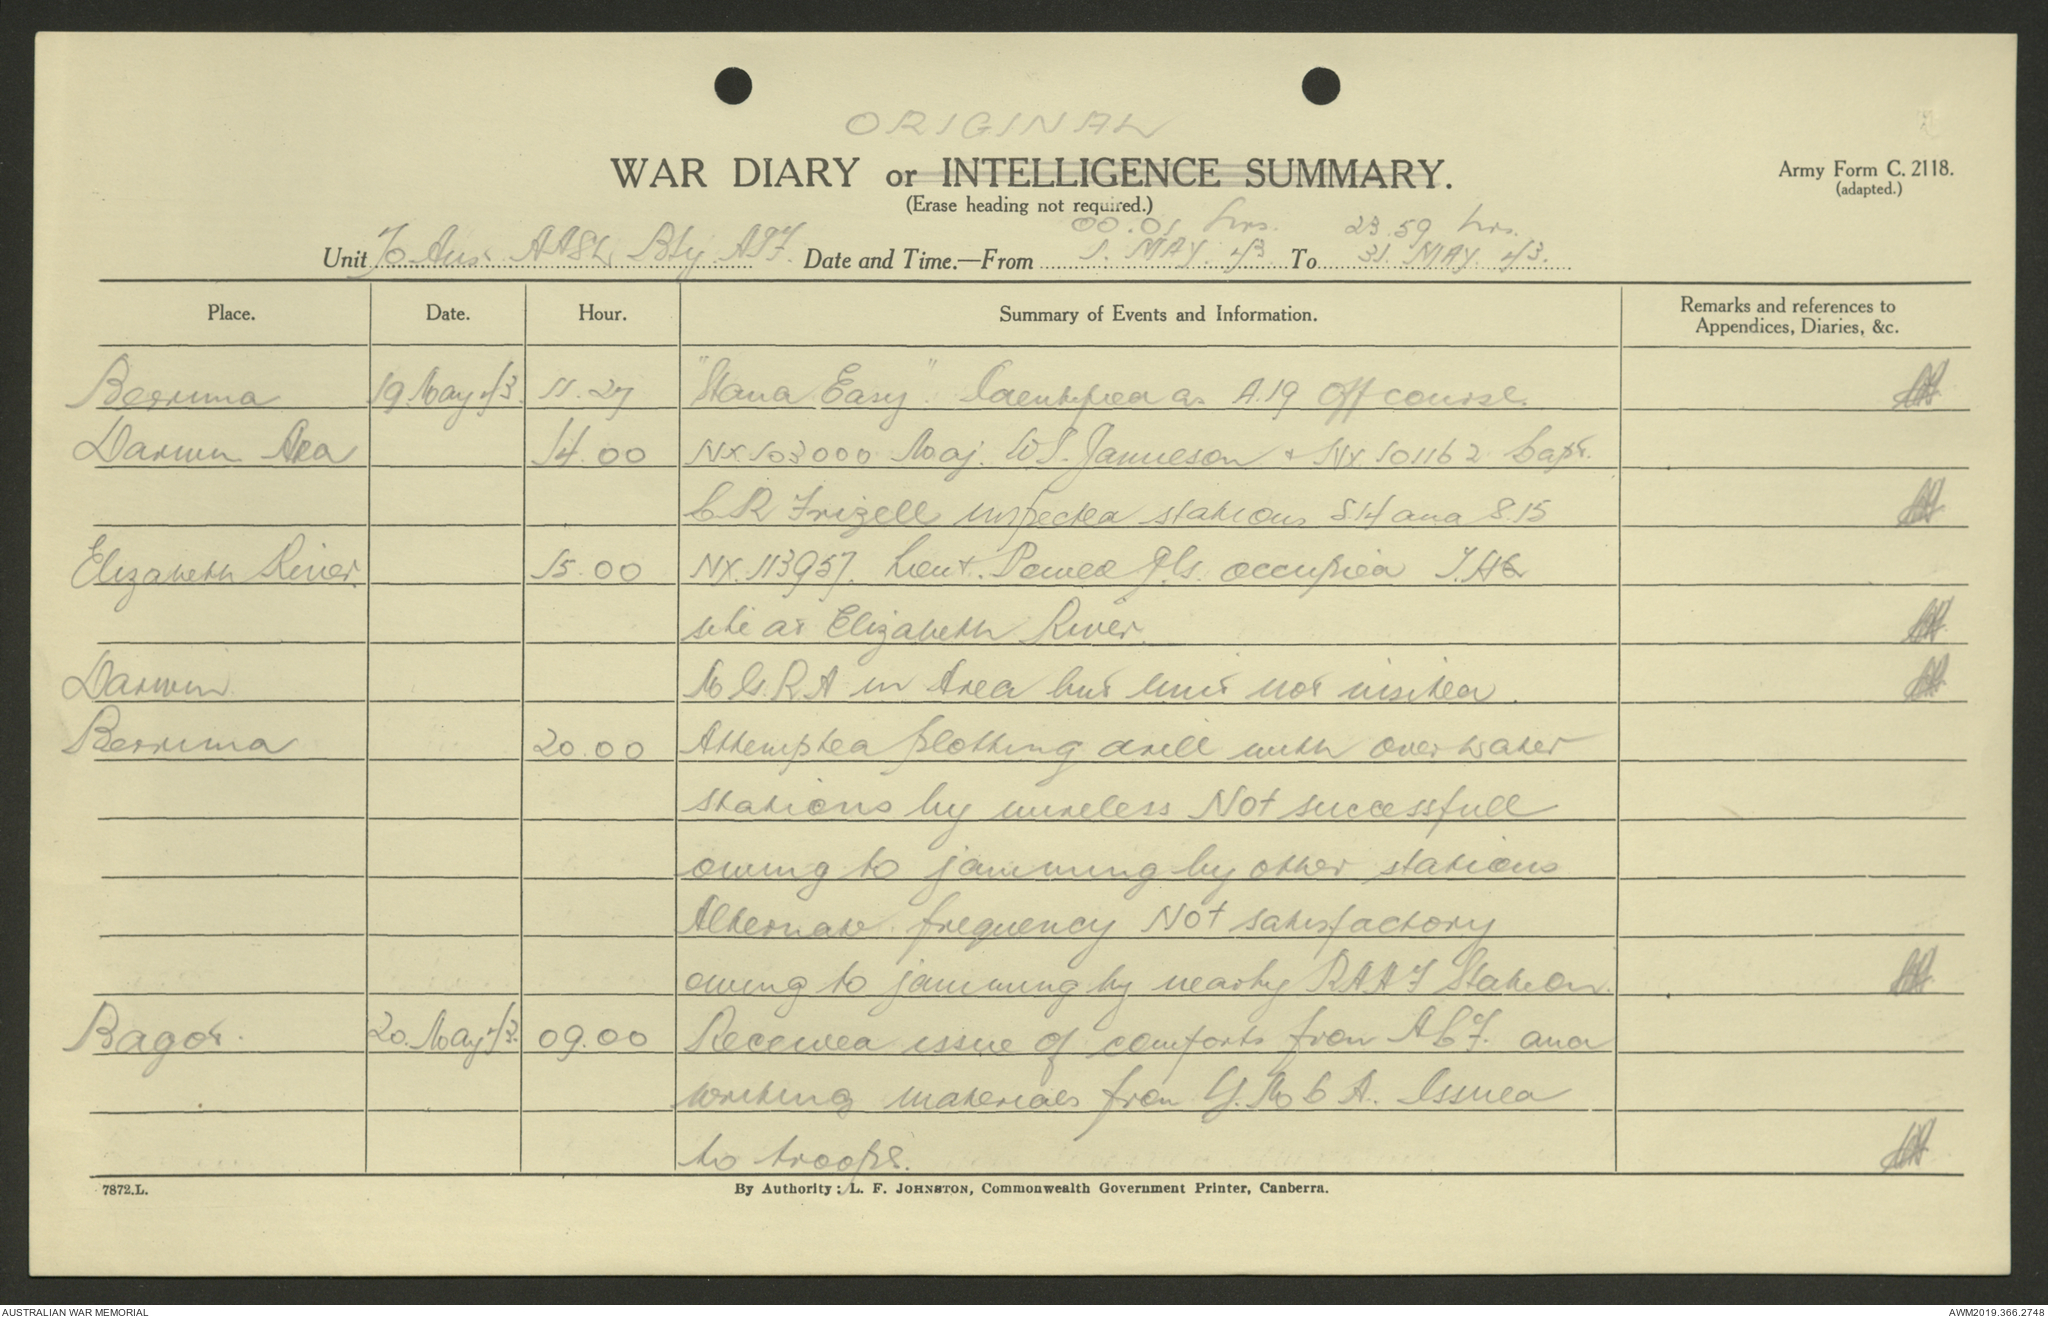 ORIGINAL
WAR DIARY or INTELLIGENCE SUMMARY.
Army Form C. 2118.
(adapted.)
(Erase heading not required.)
00.01 hrs. 23.59 hrs.
Unit 70 Aust AASL Bty AIF. Date and Time.—From 1. MAY. 43. To 31. MAY. 43.
Place. Date. Hour. Summary of Events and Information. Remarks and references to
Appendices, Diaries, &c.
Berrima 19 May 43. 11.27 "Stand Easy". Identified as A.19 off course.
Darwin Area 14.00 NX.103000 Maj. W.S. Jamieson & NX.101162 Capt.
C R Frizell inspected stations S.14 and S.15
Elizabeth River. 15.00 NX.113957. Lieut. occupied
site at Elizabeth River.
Darwin. M.G.R.A in Area but unit not visited.
Berrima 20.00 Attempted plotting drill with over water
stations by wireless Not successfull
owing to jamming by other stations
Alternate frequency Not satisfactory
owing to jamming by nearby RAAF Station.
Bagot. 20. May 43. 09.00 Received issue of comforts from ACF. and
writing materials from Y.M.C.A. Issued
to troops.
7872.L. By Authority: L. F. JOHNSTON, Commonwealth Government Printer, Canberra.
AUSTRALIAN WAR MEMORIAL AWM2019.366.2748